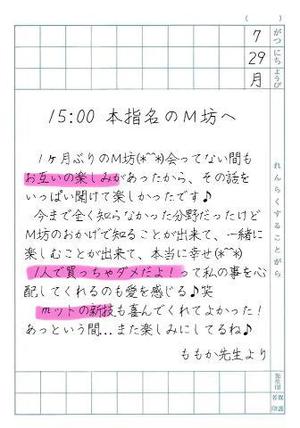 ( )
7 がつ
29 にち
月 ようび
れんらくすることがら
15:00 本指名のM坊へ
1ヶ月ぶりのM坊(*^^*)会ってない間も
お互いの楽しみがあったから、その話を
いっぱい聞けて楽しかったです♪
今まで全く知らなかった分野だったけど
M坊のおかげで知ることが出来て、一緒に
楽しむことが出来て、本当に幸せ(*^^*)
1人で買っちゃダメだよ！って私の事を心
配してくれるのも愛を感じる♪笑
mットの新技も喜んでくれてよかった！
あっという間…また楽しみにしてるね♪
ももか先生より